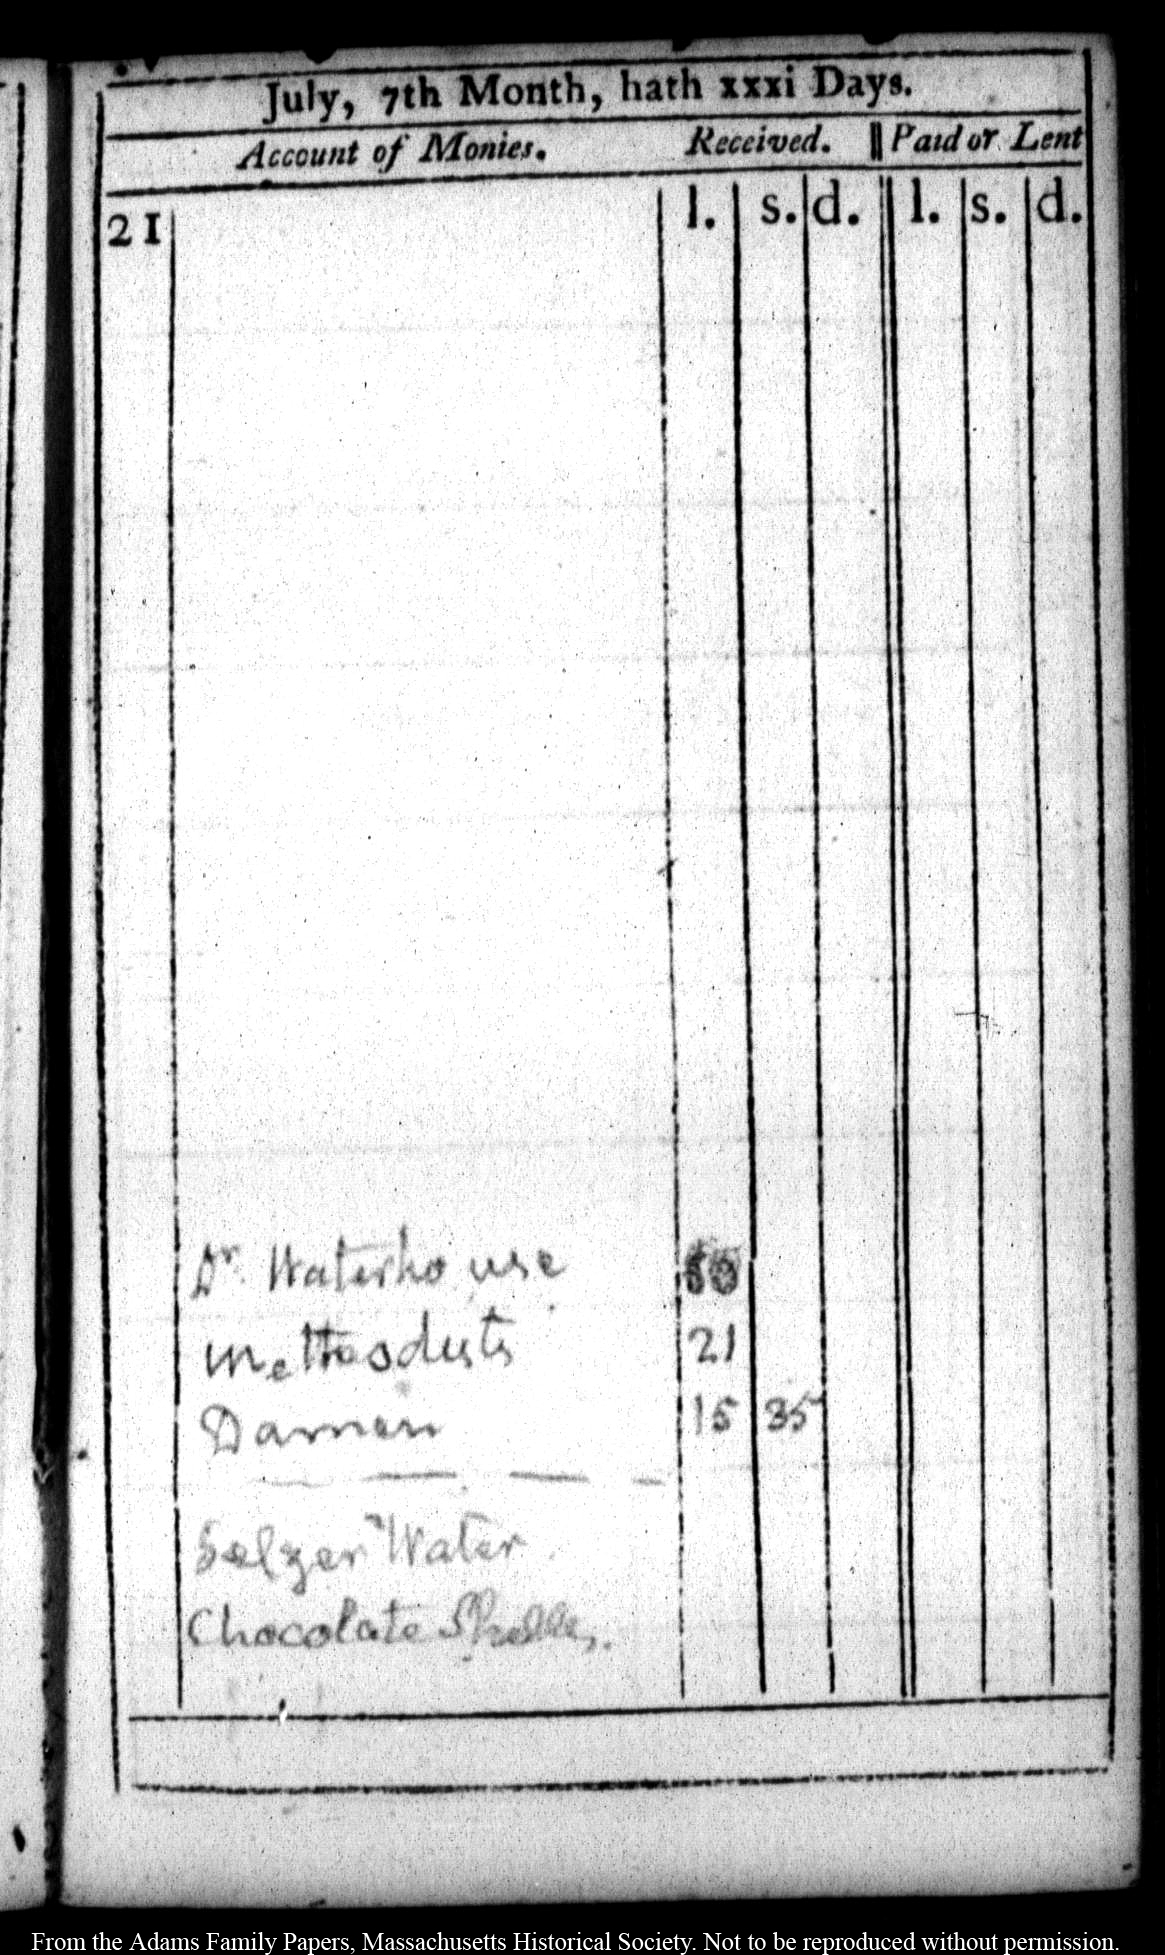 July, 7th Month, hath xxxi Days.
Account of Monies. Received. Paid or Lent
21 l. s. d. l. s. d.
Dr. Waterhouse 50
Methodists 21
Damen 15 35
Selzer Water
Chocolate Shells.
From the Adams Family Papers, Massachusetts Historical Society. Not to be reproduced without permission.